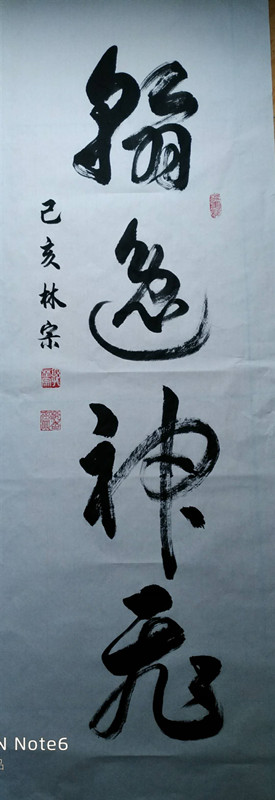 翰逸神飛
己亥林宗
N Note6
品